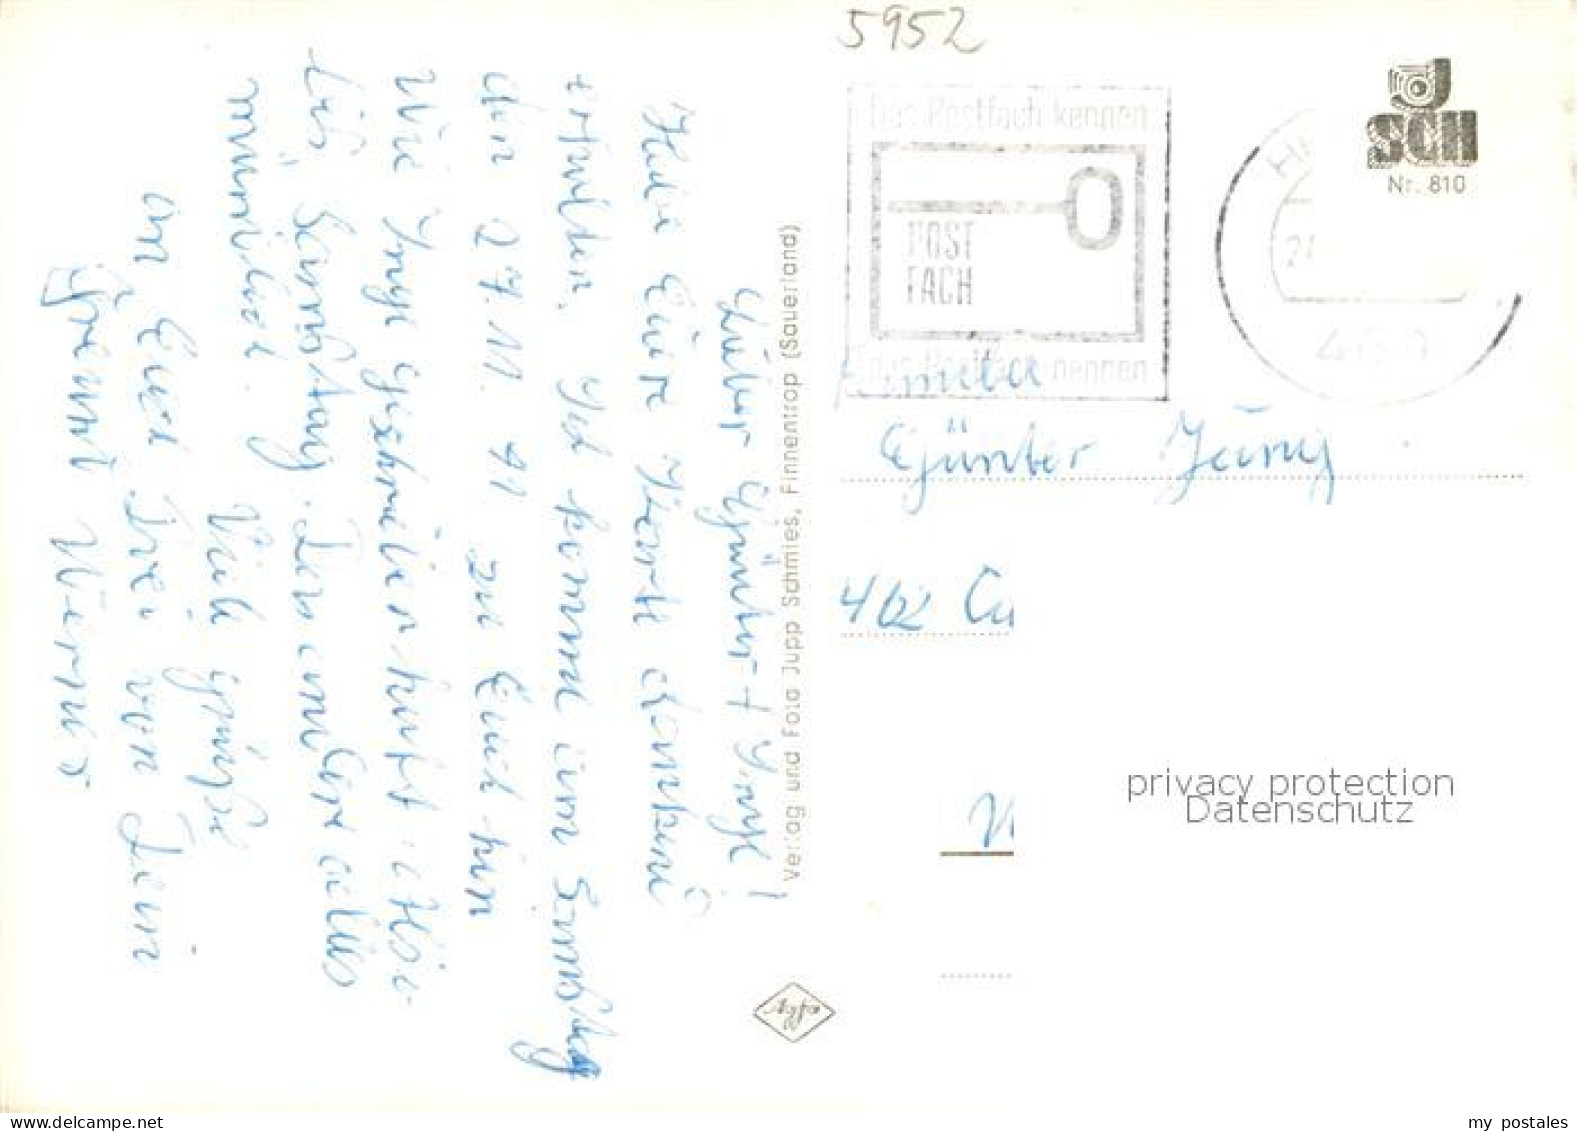 5952
Lieber Günter + Inge!
Habe Eure Karte dankend
erhalten. Ich komme am Samstag
den 27. 11. 71 zu Euch hin
Wie Inge geschrieben hat. Also
bis Samstag. Dann alles
mündlich.
Viele Grüße
an Euch Drei von Deim
Freund Werner
Verlag und Foto Jupp Schmies, Finnentrop (Sauerland)
Agfa
Das Postfach kennen
POST
FACH
das Postfach nennen
SCH
Nr. 810
Familie
Günter Jung
462 Ca
privacy protection
Datenschutz
my postales